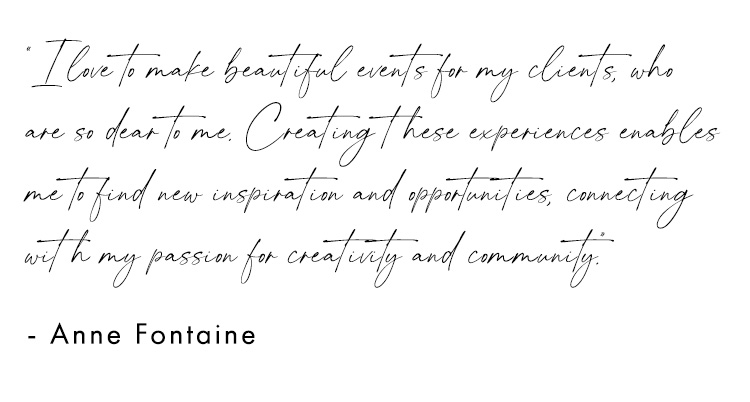 "I love to make beautiful events for my clients, who
are so dear to me. Creating these experiences enables
me to find new inspiration and opportunities, connecting
with my passion for creativity and community."
- Anne Fontaine